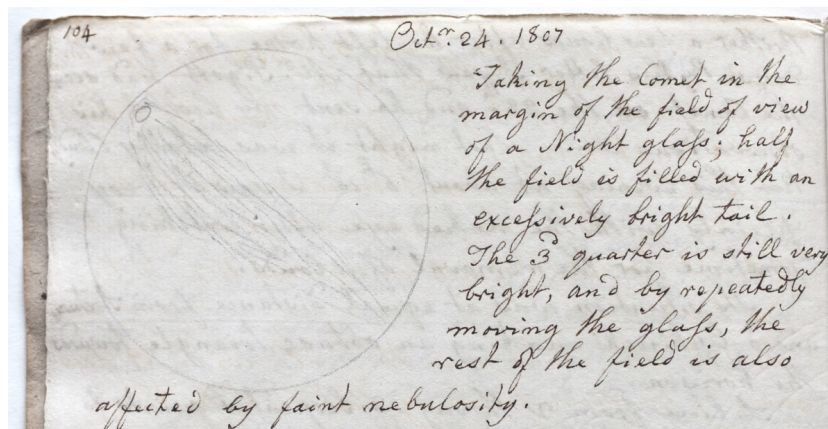 104
Octr. 24. 1807
Taking the Comet in the
margin of the field of view
of a Night glaſs; half
the field is filled with an
exceſsively bright tail.
The 3d quarter is still very
bright, and by repeatedly
moving the glaſs, the
rest of the field is also
affected by faint nebulosity.